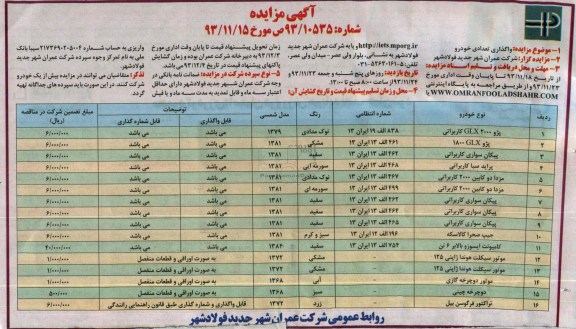 آگهی مزایده
شماره: ۹۳/۱۰۵۳۵ص مورخ ۹۳/۱۱/۱۵
۱- موضوع مزایده: واگذاری تعدادی خودرو
۲- مزایده گزار: شرکت عمران شهر جدید فولادشهر
۳- مهلت و محل دریافت و تسلیم اسناد مزایده:
از تاریخ ۹۳/۱۱/۱۸ تا پایان وقت اداری مورخ
۹۳/۱۱/۲۳ از طریق مراجعه به پایگاه اینترنتی
WWW.OMRANFOOLADSHAHR.COM یا
http://iets.mporg.ir و یا به شرکت عمران شهر جدید
فولادشهر به نشانی: بلوار ولی عصر - میدان ولی عصر
تاریخ بازدید: روزهای پنج شنبه و جمعه
ساعت ۸:۰۰ صبح تا ۱۳:۰۰
۴- محل و زمان تسلیم پیشنهاد قیمت و تاریخ گشایش آن:
زمان تحویل پیشنهاد قیمت تا پایان وقت اداری مورخ
۹۳/۱۲/۳ به دبیرخانه شرکت عمران بوده و زمان گشایش
پاکتهای پیشنهاد قیمت در تاریخ ۹۳/۱۲/۴ می باشد.
۵- نوع سپرده شرکت در مزایده: ضمانت نامه بانکی در
وجه شرکت عمران شهر جدید فولادشهر دارای حداقل
اعتبار سه ماه و قابل تمدید به مدت سه ماه و یا فیش
واریزی به حساب شماره ۲۱۷۳۶۹۰۲۰۵۰۰۴ سیبا بانک
ملی به نام تمرکز وجوه سپرده شرکت عمران شهر جدید
فولادشهر
تذکر: متقاضیان می توانند در مزایده بیش از یک خودرو
شرکت کنند، در این صورت باید سپرده های جداگانه تهیه
گردد.
ردیف نوع خودرو شماره انتظامی رنگ مدل شمسی توضیحات مبلغ تضمین شرکت در مناقصه (ریال)
قابل واگذاری قابل شماره گذاری
۱ پژو GLX ۲۰۰۰ کاربراتی ۸۳۸ الف ۱۹ ایران ۱۳ نوک مدادی ۱۳۷۹ می باشد می باشد ۶/۰۰۰/۰۰۰
۲ پژو GLX ۱۸۰۰ ۴۶۱ الف ۱۲ ایران ۱۳ مشکی ۱۳۸۱ می باشد می باشد ۶/۰۰۰/۰۰۰
۳ پیکان سواری کاربراتی ۴۶۳ الف ۱۲ ایران ۱۳ سفید ۱۳۸۱ می باشد می باشد ۶/۰۰۰/۰۰۰
۴ پراید صبا کاربراتی ۴۶۸ الف ۱۲ ایران ۱۳ سورمه ای ۱۳۸۱ می باشد می باشد ۶/۰۰۰/۰۰۰
۵ مزدا دو کابین ۲۰۰۰ کاربراتی ۴۶۷ الف ۱۲ ایران ۱۳ نوک مدادی ۱۳۸۱ می باشد می باشد ۶/۰۰۰/۰۰۰
۶ مزدا دو کابین ۲۰۰۰ کاربراتی ۴۹۹ الف ۱۲ ایران ۱۳ سورمه ای ۱۳۸۱ می باشد می باشد ۶/۰۰۰/۰۰۰
۷ پیکان سواری کاربراتی ۴۶۲ الف ۱۲ ایران ۱۳ سفید ۱۳۸۱ می باشد می باشد ۶/۰۰۰/۰۰۰
۸ پیکان سواری کاربراتی ۴۶۴ الف ۱۲ ایران ۱۳ سفید ۱۳۸۱ می باشد می باشد ۶/۰۰۰/۰۰۰
۹ پیکان سواری کاربراتی ۴۶۵ الف ۱۲ ایران ۱۳ سفید ۱۳۸۱ می باشد می باشد ۶/۰۰۰/۰۰۰
۱۰ جیپ صحرا ۶ کالسکه ۱۹۶ الف ۱۲ ایران ۱۳ سبز و کرم ۱۳۸۱ می باشد می باشد ۶/۰۰۰/۰۰۰
۱۱ کامیونت ایسوزو بالابر ۶ تن ۲۵۲ الف ۱۲ ایران ۱۳ سفید ۱۳۸۲ می باشد می باشد ۲۰/۰۰۰/۰۰۰
۱۲ موتور سیکلت هوندا ژاپنی ۱۲۵ - مشکی ۱۳۷۲ به صورت اوراقی و قطعات منفصل ۱/۰۰۰/۰۰۰
۱۳ موتور سیکلت هوندا ژاپنی ۱۲۵ - مشکی ۱۳۷۲ به صورت اوراقی و قطعات منفصل ۱/۰۰۰/۰۰۰
۱۴ موتور دوچرخه گازی - آبی ۱۳۶۸ به صورت اوراقی و قطعات منفصل ۱/۰۰۰/۰۰۰
۱۵ دوچرخه چینی - سبز ۱۳۶۸ به صورت اوراقی و قطعات منفصل ۵۰۰/۰۰۰
۱۶ تراکتور فرگوسن بیل - زرد ۱۳۷۲ قابل واگذاری و شماره گذاری طبق قانون راهنمایی رانندگی ۶/۰۰۰/۰۰۰
روابط عمومی شرکت عمران شهر جدید فولادشهر